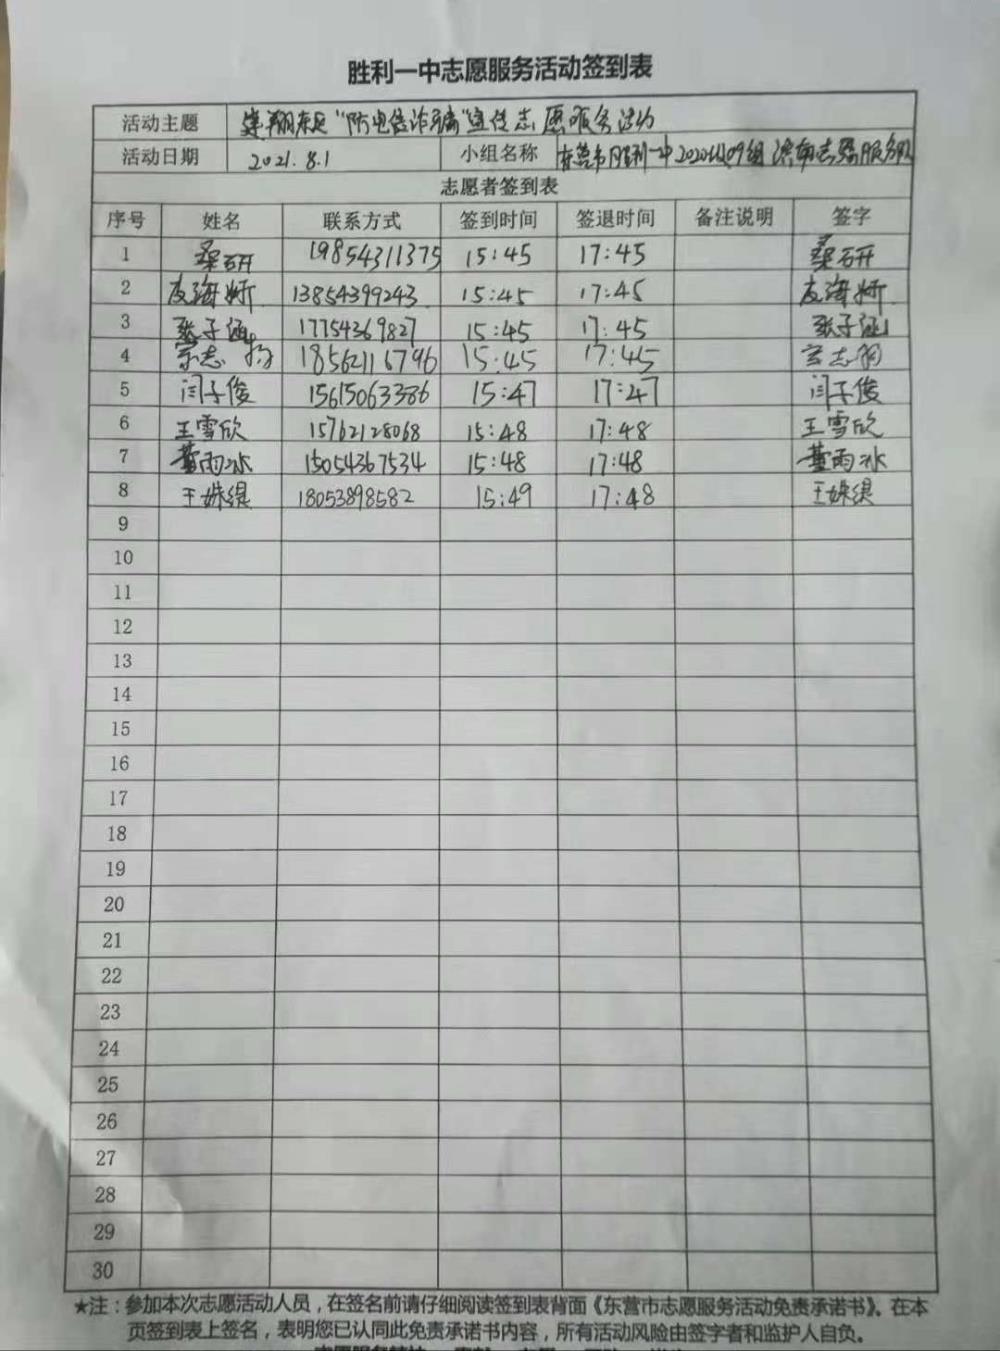 胜利一中志愿服务活动签到表
活动主题 "防电信诈骗"宣传志愿服务活动
活动日期 2021.8.1 小组名称 东营市胜利一中2020级09组 志愿服务队
志愿者签到表
序号 姓名 联系方式 签到时间 签退时间 备注说明 签字
1 桑研 19854311375 15:45 17:45 桑研
2 友海妍 13854399243 15:45 17:45 友海妍
3 张子涵 17754369827 15:45 17:45 张子涵
4 宗志 18562116796 15:45 17:45 宗志
5 闫子俊 15615063386 15:47 17:47 闫子俊
6 王雪欣 15762128068 15:48 17:48 王雪欣
7 董雨冰 15054367534 15:48 17:48 董雨冰
8 王姝缇 18053898582 15:49 17:48 王姝缇
9
10
11
12
13
14
15
16
17
18
19
20
21
22
23
24
25
26
27
28
29
30
★注：参加本次志愿活动人员，在签名前请仔细阅读签到表背面《东营市志愿服务活动免责承诺书》。在本
页签到表上签名，表明您已认同此免责承诺书内容，所有活动风险由签字者和监护人自负。